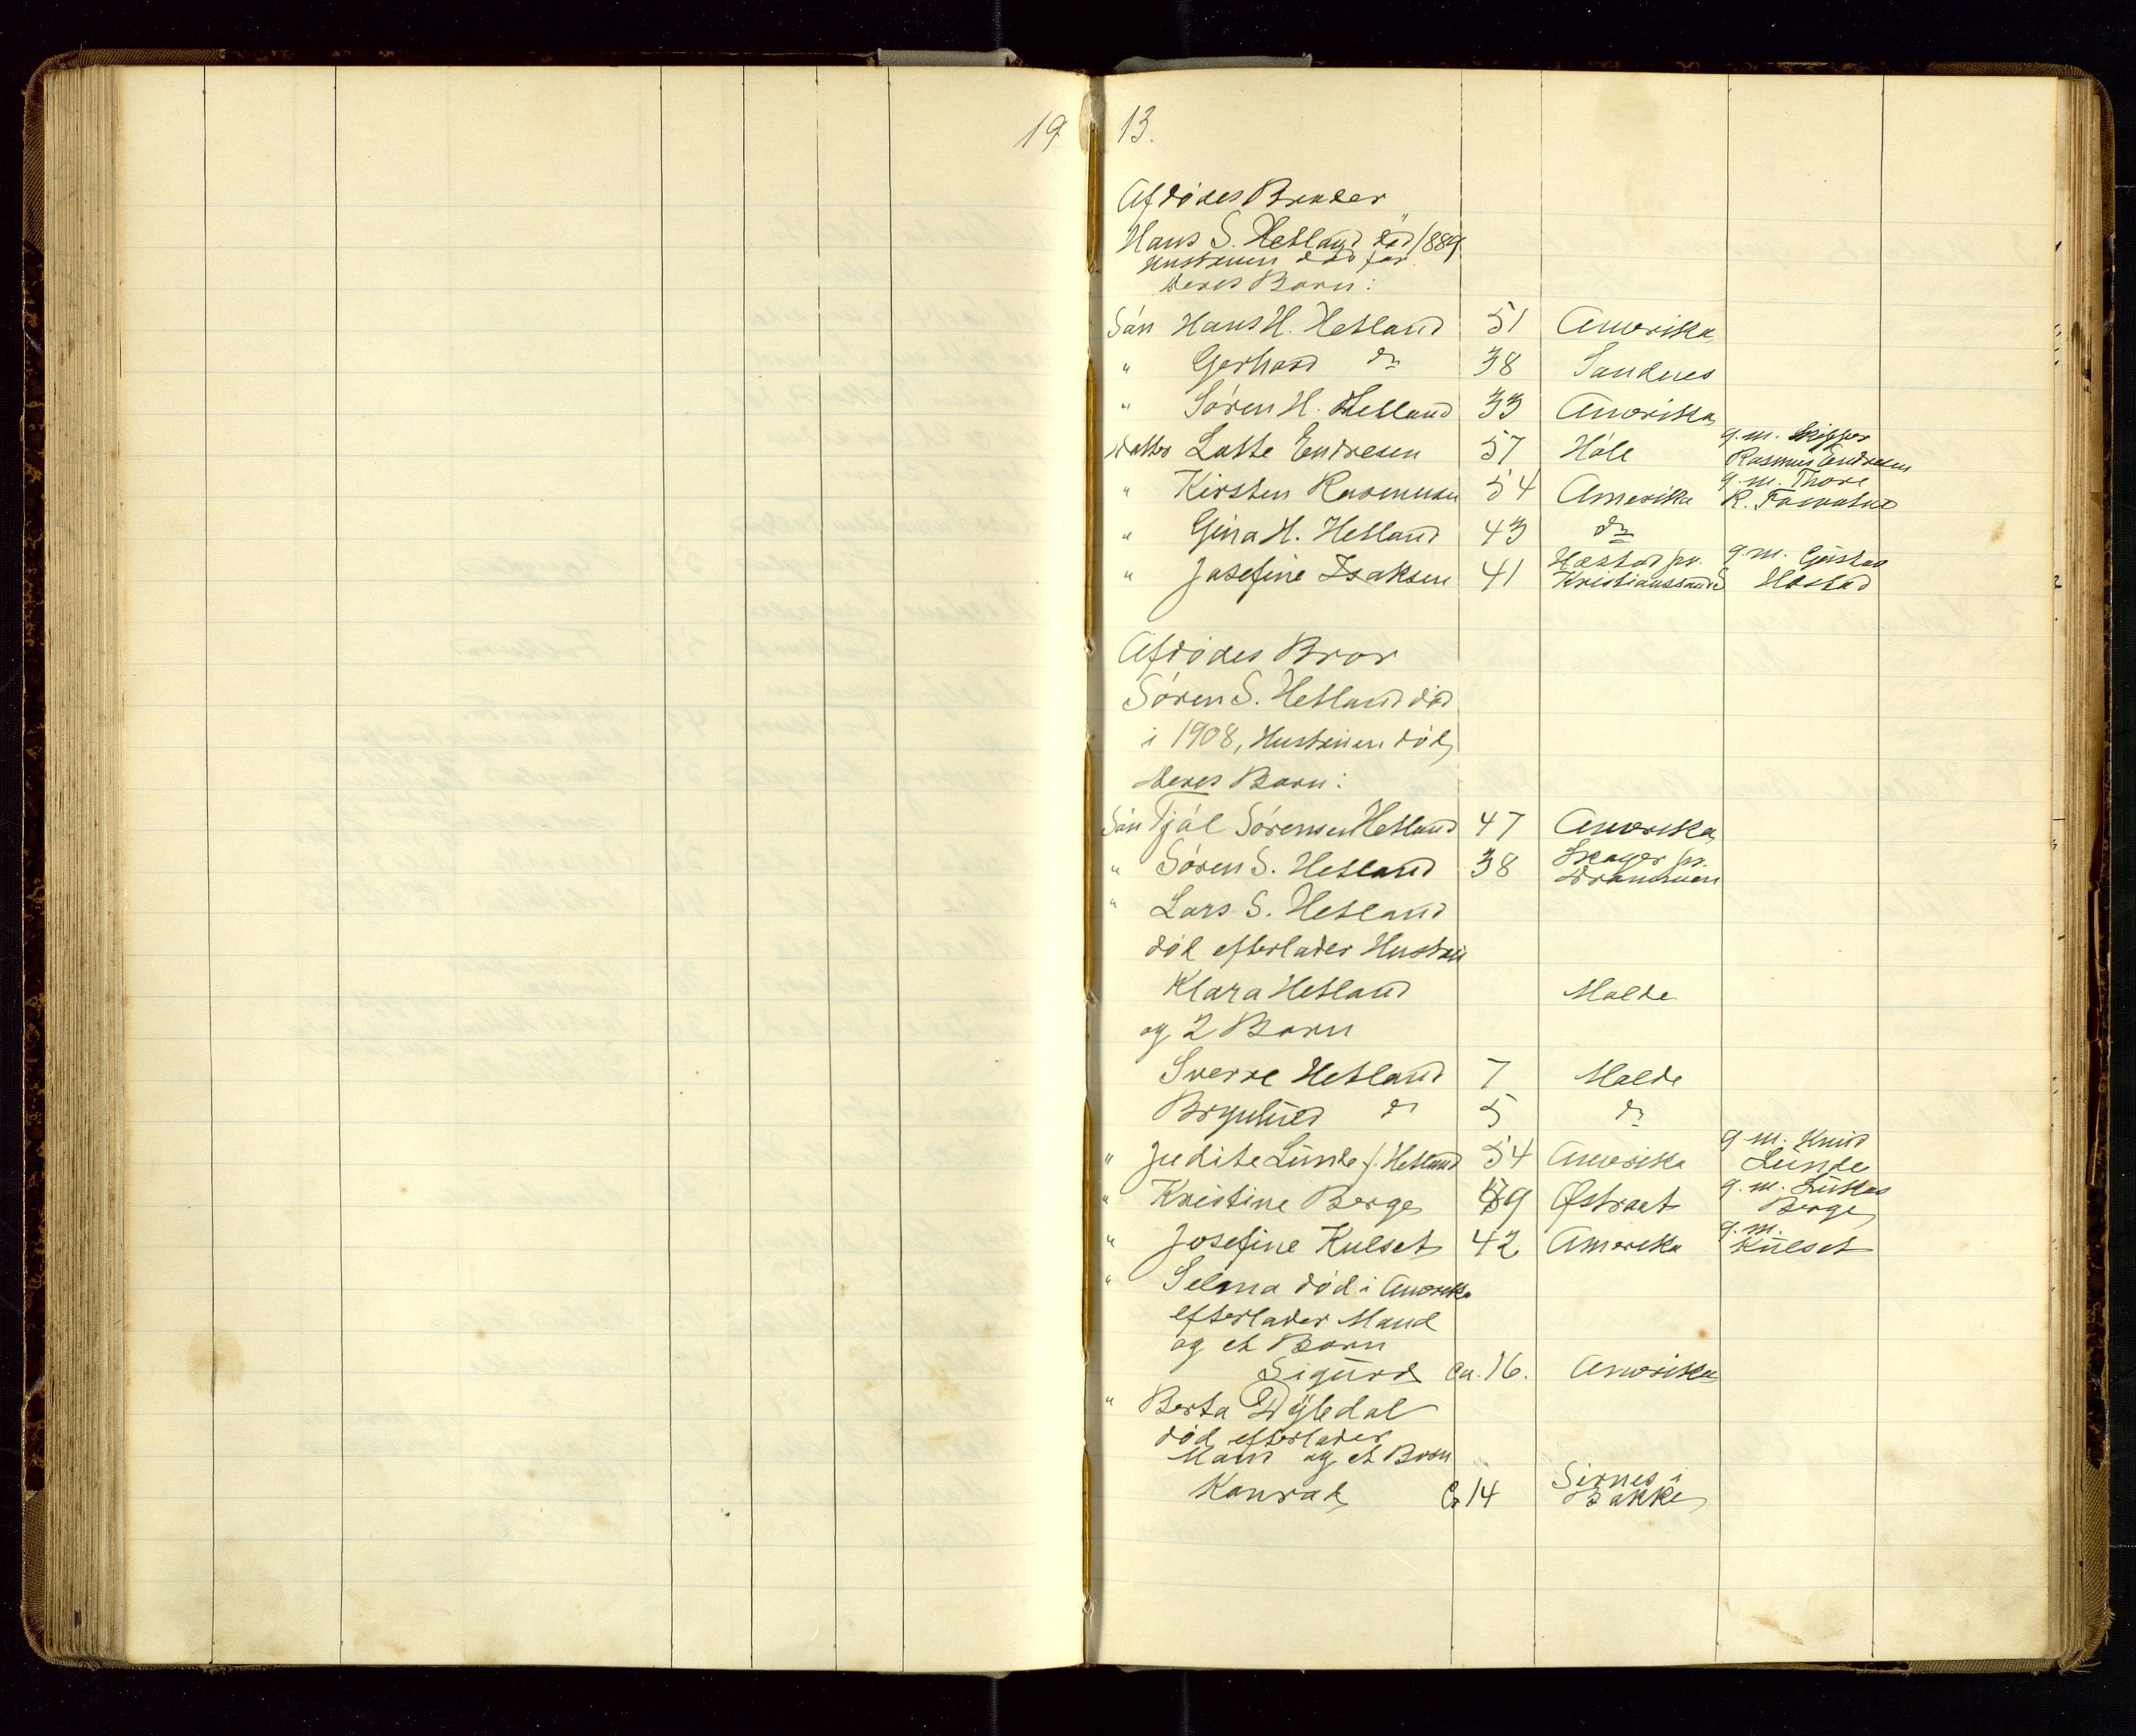 19 13.
Afdødes Broder
Hans S. Hetland død 1889
Hustruen død før
deres Børn:
Søn Hans H. Hetland 51 Amerika
" Gerhard do 38 Sandnes
" Søren H. Hetland 33 Amerika
Datter Lotte Endresen 57 Høle g. m. Skipper Rasmus Endresen
" Kirsten Rasmusen 54 Amerika g. m. Thore R.
" Gina H. Hetland 43 do
" Josefine Isaksen 41 Hæstad pr. Kristianssand g. m. Gustav Hæstad
Afdødes Bror
Søren S. Hetland død
i 1908, Hustruen død,
deres Børn:
Søn Tjøl Sørensen Hetland 47 Amerika
" Søren S. Hetland 38 Skoger pr. Drammen
" Lars S. Hetland
død efterlader Hustru
Klara Hetland Molde
og 2 Børn
Sverre Hetland 7 Molde
Brynhild do 5 do
" Judite Lunde f. Hetland 54 Amerika g. m. Knud Lunde
" Kristine Berge 49 Østraat g. m. Lukas Berge
" Josefine Kulset 42 Amerika g. m. Kulset
" Selma død i Amerika
efterlader Mand
og et Barn
Sigurd ca. 16. Amerika
" Berta Dybedal
død efterlader
Mand og et Barn
Konrad Ca 14 Sirnes i Bakke